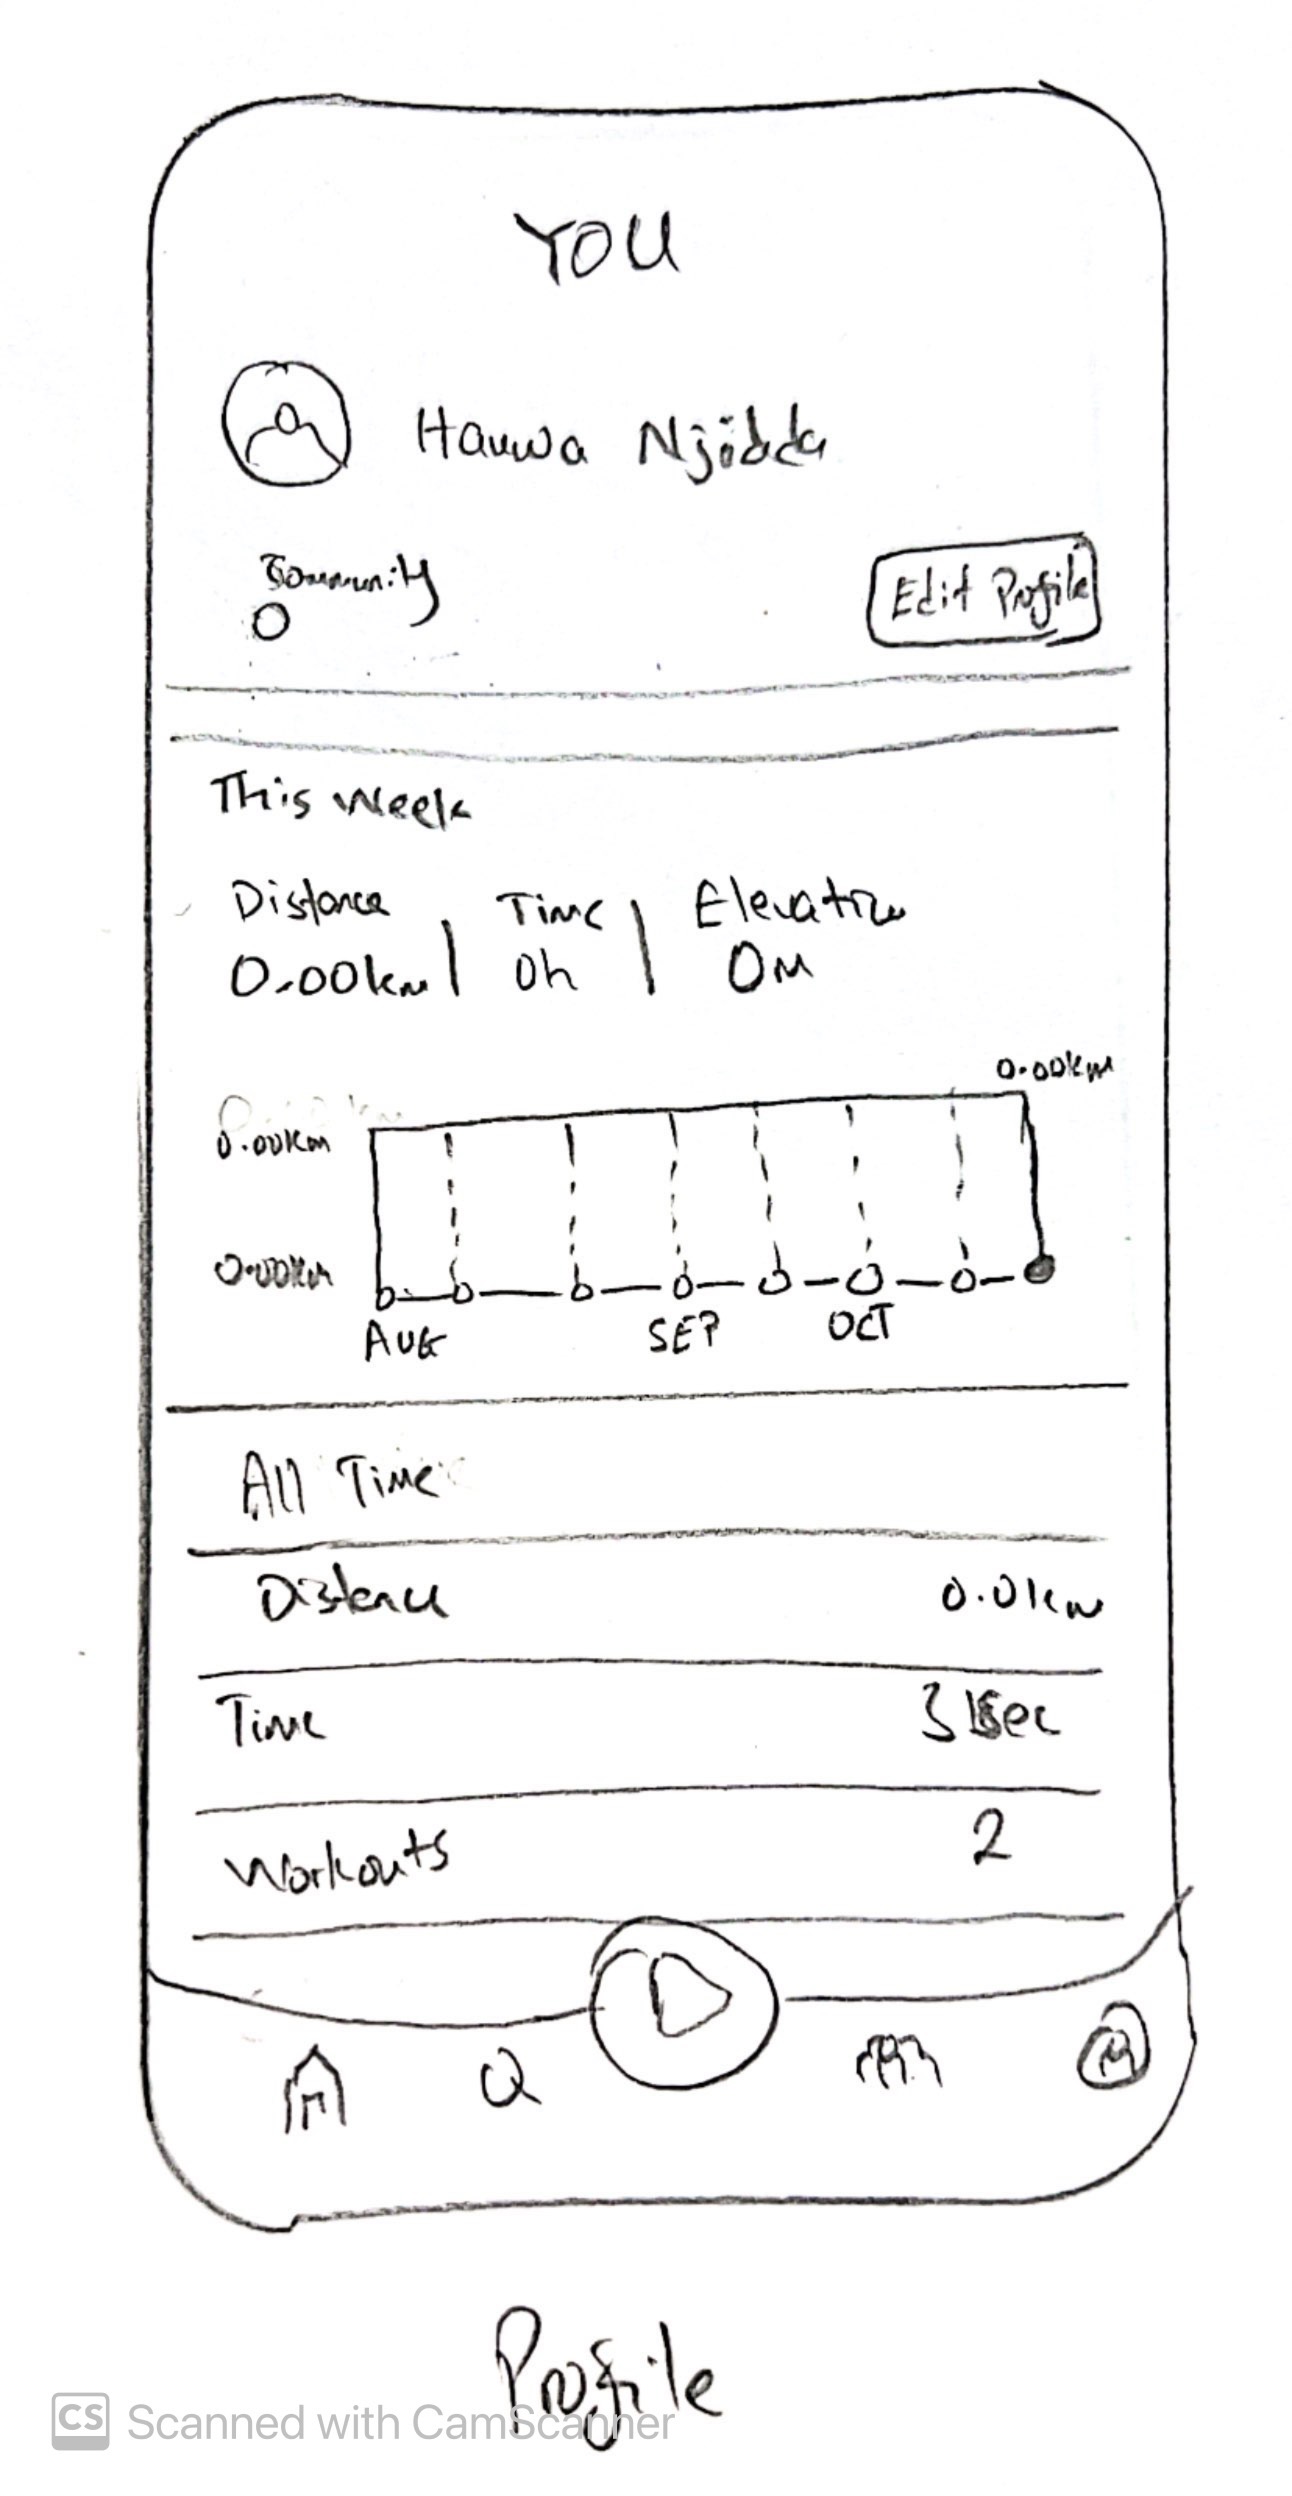 YOU
Hauwa Njidda
Community
0
Edit Profile
This Week
Distance | Time | Elevation
0.00km | 0h | 0M
0.00km
0.00km
0.00km
AUG SEP OCT
All Time
Distance 0.0km
Time
Workouts 2
Profile
CS Scanned with CamScanner